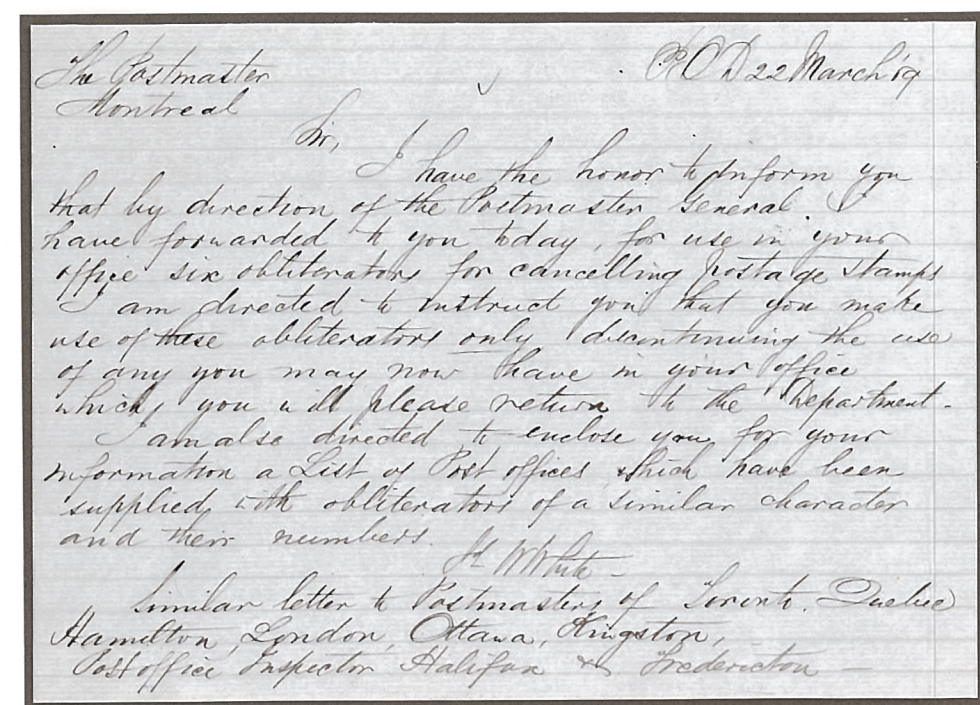 The Postmaster P.O.D 22 March '69
Montreal
Sir,
I have the honor to inform you
that by direction of the Postmaster General I
have forwarded to you today, for use in your
office six obliterators for cancelling postage stamps
I am directed to instruct you that you make
use of these obliterators only discontinuing the use
of any you may now have in your office
which you will please return to the Department.
I am also directed to enclose you, for your
information a List of Post offices which have been
supplied with obliterators of a similar character
and their numbers.
White
Similar letter to Postmasters of Toronto, Quebec
Hamilton, London, Ottawa, Kingston,
Post office Inspector Halifax & Fredericton